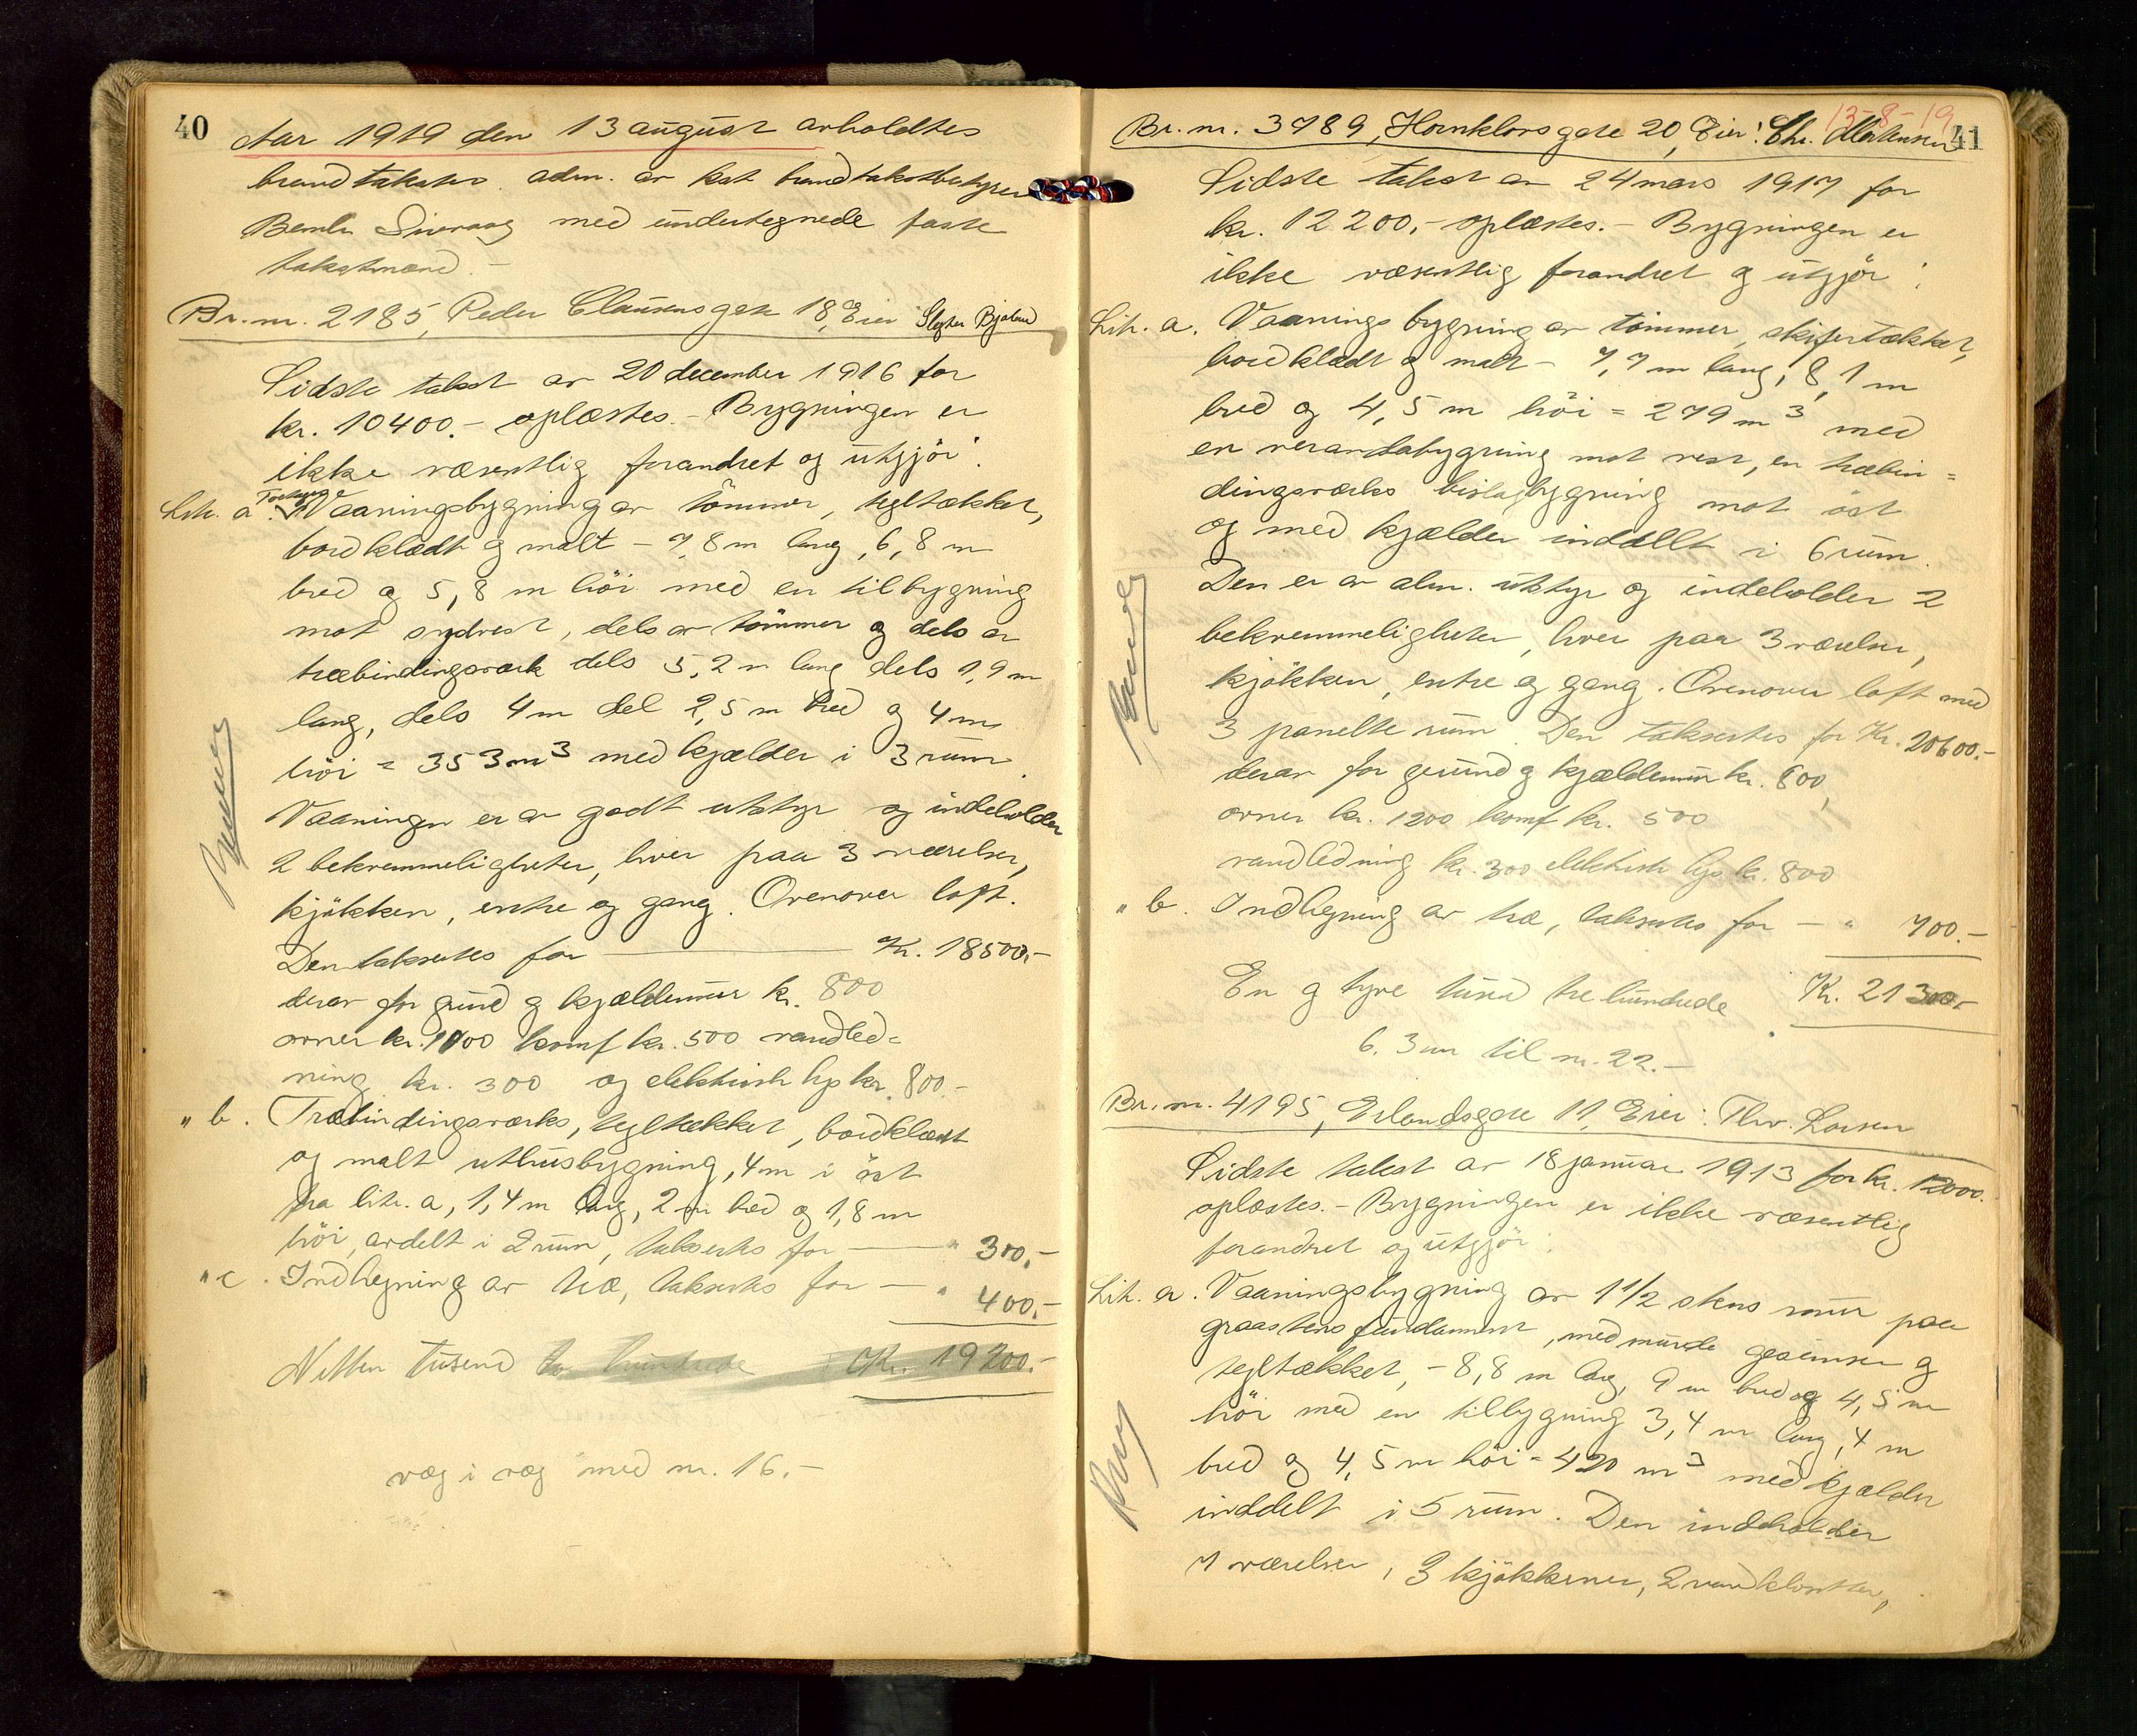 40
Aar 1919 den 13 august avholdtes
brandtakster adm. av kst brandtakstbestyrer
med undertegnede faste
takstmænd.-
Br.nr. 2185, Peder Claussens gate 18, Eier
Sidste takst av 20 december 1916 for
kr. 10400.- oplæstes.- Bygningen er
ikke væsentlig forandret og utgjör:
Lit. a. Vaaningsbygning av tömmer, tegltækket,
bordklædt og malt - 7,8 m lang, 6,8 m
bred og 5,8 m höi med en tilbygning
mot sydvest, dels av tömmer og dels av
træbindingsværk dels 5,2 m lang dels 1,9 m
lang, dels 4 m del 2,5 m bred og 4 m
höi = 353 m³ med kjælder i 3 rum.
Vaaningen er av godt utstyr og indeholder
2 bekvemmeligheter, hver paa 3 værelser,
kjökken, entre og gang. Ovenover loft.
Den taksertes for Kr. 18500,-
derav for grund og kjældermur kr. 800
ovner kr. 1000 komf kr. 500 vandled=
ning kr. 300 og elektrisk lys kr. 800.-
" b. Træbindingsværks, tegltækket, bordklædt
og malt uthusbygning, 4 m i öst
fra lit. a, 1,4 m lang, 2 m bred og 1,8 m
höi, avdelt i 2 rum, taksertes for — " 300,-
" c. Indhegning av træ, taksertes for — " 400,-
Nitten tusend to hundrede Kr. 19200.-
væg i væg med nr. 16.-
13-8-19
41
Br.nr. 3789, Hornklovs gate 20, Eier: Chr. Mortensen
Sidste takst av 24 mars 1917 for
kr. 12200,- oplæstes.- Bygningen er
ikke væsentlig forandret og utgjör:
Lit. a. Vaaningsbygning av tömmer, skifertækket,
bordklædt og malt - 7,7 m lang, 8,1 m
bred og 4,5 m höi = 279 m³ med
en verandabygning mot vest, en træbin=
dingsværks bislagbygning mot öst
og med kjælder inddelt i 6 rum.
Den er av alm. utstyr og indeholder 2
bekvemmeligheter, hver paa 3 værelser,
kjökken, entre og gang. Ovenover loft med
3 panelte rum. Den taksertes for Kr. 20600.-
derav for grund og kjældermur kr. 800,
ovner kr. 1200 komf kr. 500
vandledning kr. 300 elektrisk lys kr. 800
" b. Indhegning av træ, taksertes for — " 700.-
En og tyve tusen tre hundrede Kr. 21300.-
6.3 m til nr. 22.-
Br.nr. 4195, Erlandsgate 11, Eier: Thv. Larsen
Sidste takst av 18 januar 1913 for kr. 12000.
oplæstes.- Bygningen er ikke væsentlig
forandret og utgjör:
Lit. a. Vaaningsbygning av 1 1/2 stens mur paa
graastens fundament, med murede gesimser og
tegltækket, - 8,8 m lang, 9 m bred og 4,5 m
höi med en tilbygning 3,4 m lang, 4 m
bred og 4,5 m höi = 420 m³ med kjælder
inddelt i 5 rum. Den indeholder
7 værelser, 3 kjökkener, 2 vandklosetter,